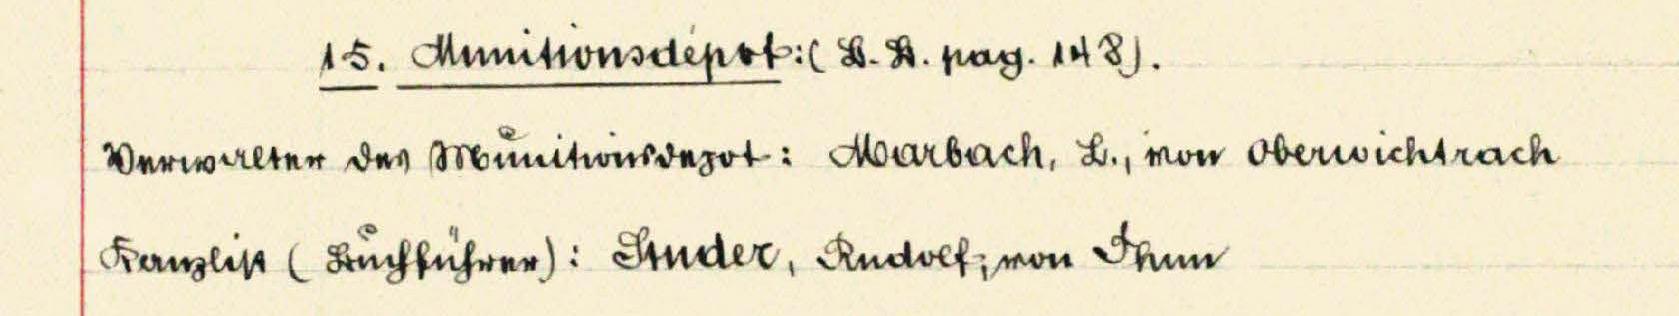 15. Munitionsdépot: (B. B. pag. 148).
Verwalter des Munitionsdepot: Marbach, L., von Oberwichtrach
Kanzlist (Buchführer): Studer, Rudolf, von Thun